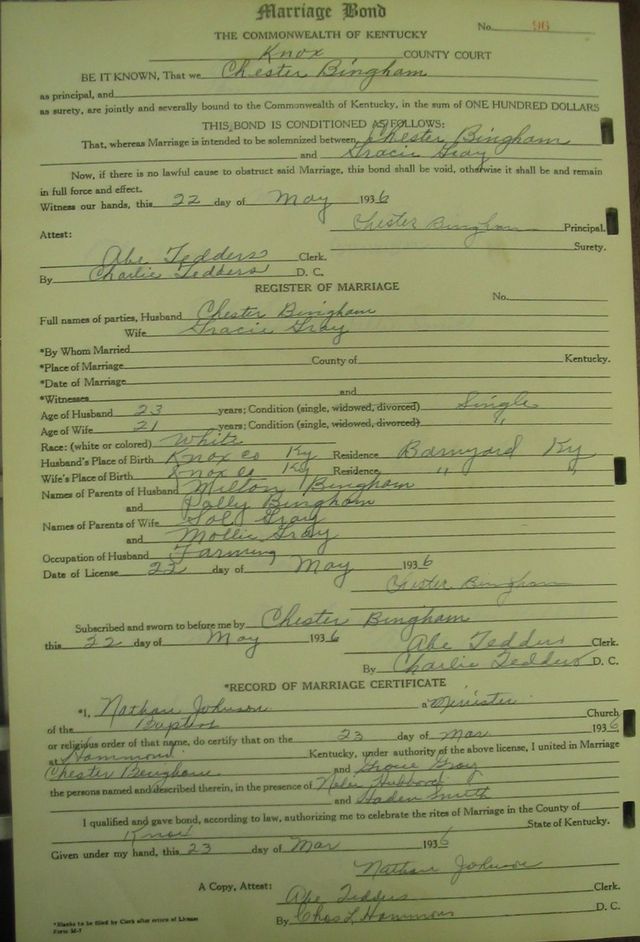 Marriage Bond
No. 96
THE COMMONWEALTH OF KENTUCKY
Knox COUNTY COURT
BE IT KNOWN, That we Chester Bingham
as principal, and
as surety, are jointly and severally bound to the Commonwealth of Kentucky, in the sum of ONE HUNDRED DOLLARS
THIS BOND IS CONDITIONED AS FOLLOWS:
That, whereas Marriage is intended to be solemnized between Chester Bingham
and Gracie Gray
Now, if there is no lawful cause to obstruct said Marriage, this bond shall be void, otherwise it shall be and remain
in full force and effect.
Witness our hands, this 22 day of May 1936
Chester Bingham Principal.
Attest:
Surety.
Abe Tedders Clerk.
By Charlie Tedders D. C.
REGISTER OF MARRIAGE
No.
Full names of parties, Husband Chester Bingham
Wife Gracie Gray
*By Whom Married
*Place of Marriage County of Kentucky.
*Date of Marriage
*Witnesses and
Age of Husband 23 years; Condition (single, widowed, divorced) Single
Age of Wife 21 years; Condition (single, widowed, divorced) "
Race: (white or colored) White
Husband's Place of Birth Knox Co Ky Residence Barnyard Ky
Wife's Place of Birth Knox Co Ky Residence " "
Names of Parents of Husband Milton Bingham
and Polly Bingham
Names of Parents of Wife Sol Gray
and Mollie Gray
Occupation of Husband Farming
Date of License 22 day of May 1936
Chester Bingham
Subscribed and sworn to before me by Chester Bingham
this 22 day of May 1936
Abe Tedders Clerk.
By Charlie Tedders D. C.
*RECORD OF MARRIAGE CERTIFICATE
*I, Nathan Johnson a Minister
of the Baptist Church
or religious order of that name, do certify that on the 23 day of Mar 1936
at Hammond Kentucky, under authority of the above license, I united in Marriage
Chester Bingham and Gracie Gray
the persons named and described therein, in the presence of Hubbard
and Haden Smith
I qualified and gave bond, according to law, authorizing me to celebrate the rites of Marriage in the County of
Knox State of Kentucky.
Given under my hand, this 23 day of Mar 1936
Nathan Johnson
A Copy, Attest: Abe Tedders Clerk.
By Chas L Hammons D. C.
*Blanks to be filed by Clerk after return of License
Form M-7